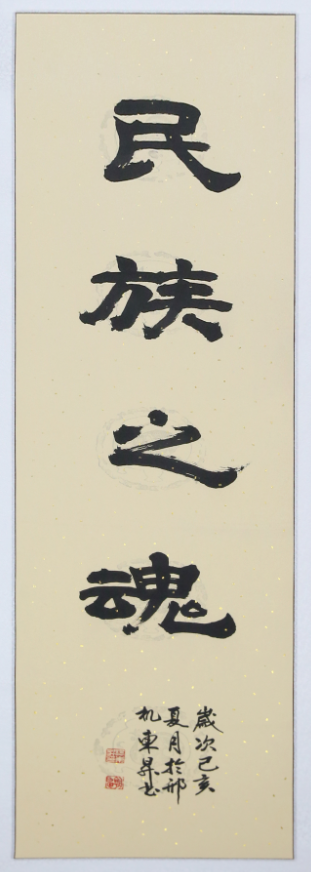 民族之魂
歲次己亥
夏月於邢
東昇书